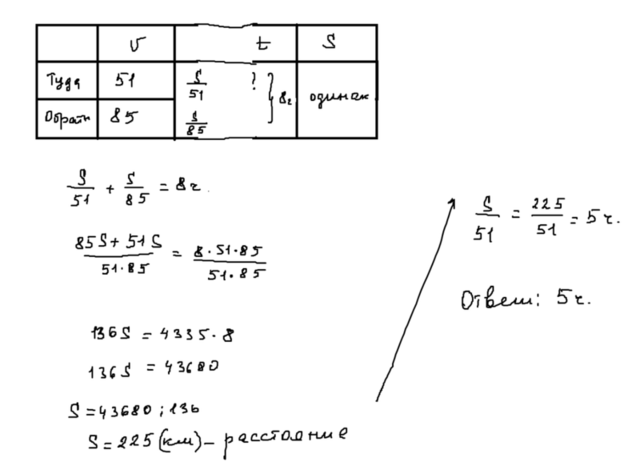 V t S
Туда 51 S/51 ? } 8г одинак
Обратн 85 S/85
S/51 + S/85 = 8г.
85S+51S/51·85 = 8·51·85/51·85
136S = 4335·8
136S = 43680
S=43680:136
S=225(км)– расстояние
S/51 = 225/51 = 5ч.
Ответ: 5ч.